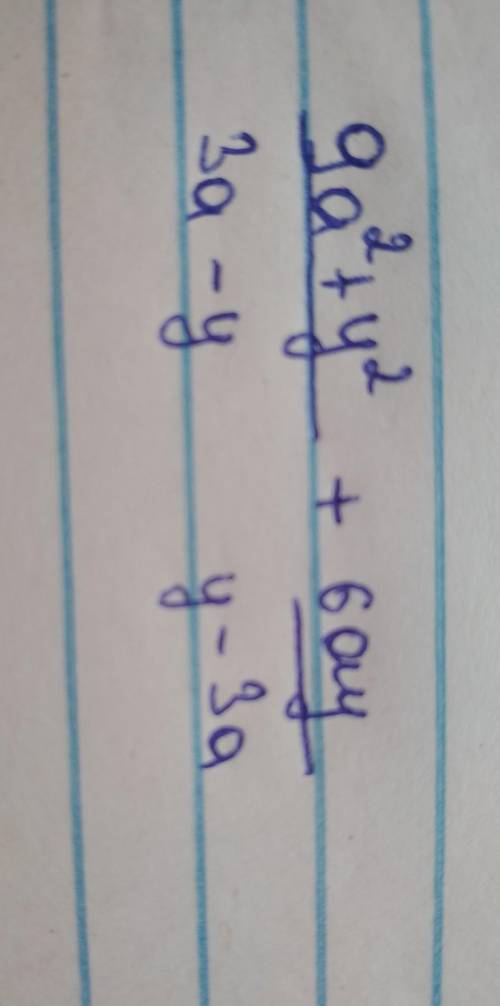 9a²+y² + 6ay
3a-y y-3a